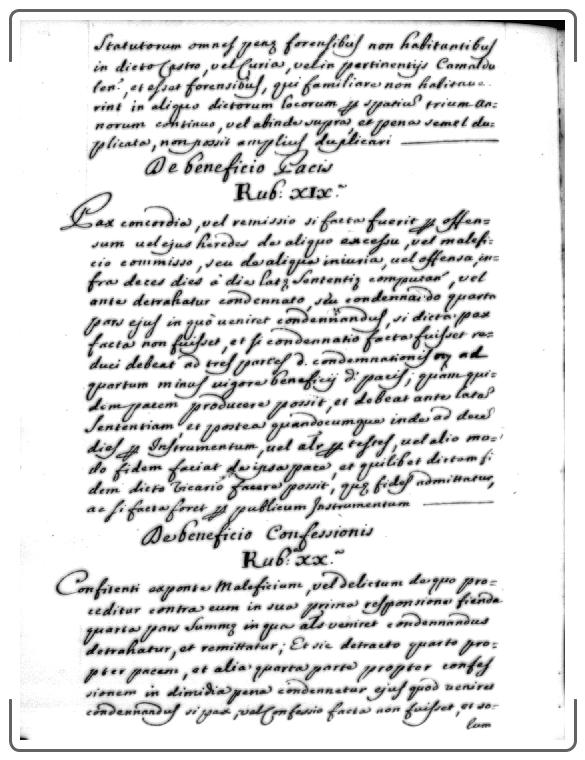 Statutorum omnes penę forensibus non habitantibus
in dicto Castro, vel Curia, vel in pertinentijs Camaldu
len:, et esset forensibus, qui familiare non habitave
rint in aliquo dictorum locorum p spatiū trium An=
norum continuo, vel abinde supra, et pena semel du=
plicata, non possit amplius duplicari
De beneficio Pacis
Rub: XIX.
Pax concordia, vel remissio si facta fuerit p offen=
sum vel ejus heredes de aliquo excessu, vel malefi=
cio commisso, seu de aliqua iniuria, vel offensa, in=
fra decē dies à die latę Sententię computan, vel
ante detrahatur condennato, seu condennando quarta
pars ejus in quò veniret condennandus, si dicta pax
facta non fuisset, et si condennatio facta fuisset re=
duci debeat ad tres partes d. condemnationis ad
quartum minus vigore beneficij d. pacis; quam qui=
dem pacem producere possit, et debeat ante latā
Sententiam, et postea quandocumque inde ad decē
dies p Instrumentum, vel als p testes, vel alio mo=
do fidem faciat de ipsa pace, et quilibet dictam fi
dem dicto Vicario facere possit, quę fides admittatur,
ac si facta foret p publicum Instrumentum
De beneficio Confessionis
Rub: XX.
Confitenti exponte Maleficium, vel delictum de quo pro=
ceditur contra eum in sua prima responsione fienda
quarta pars Summę in qua als veniret condennandus
detrahatur, et remittatur; Et sic detracto quarto pro=
pter pacem, et alia quarta parte propter confes
sionem in dimidia pena condennetur ejus quod veniret
condennandus si pax, vel Confessio facta non fuisset, et so=
lum